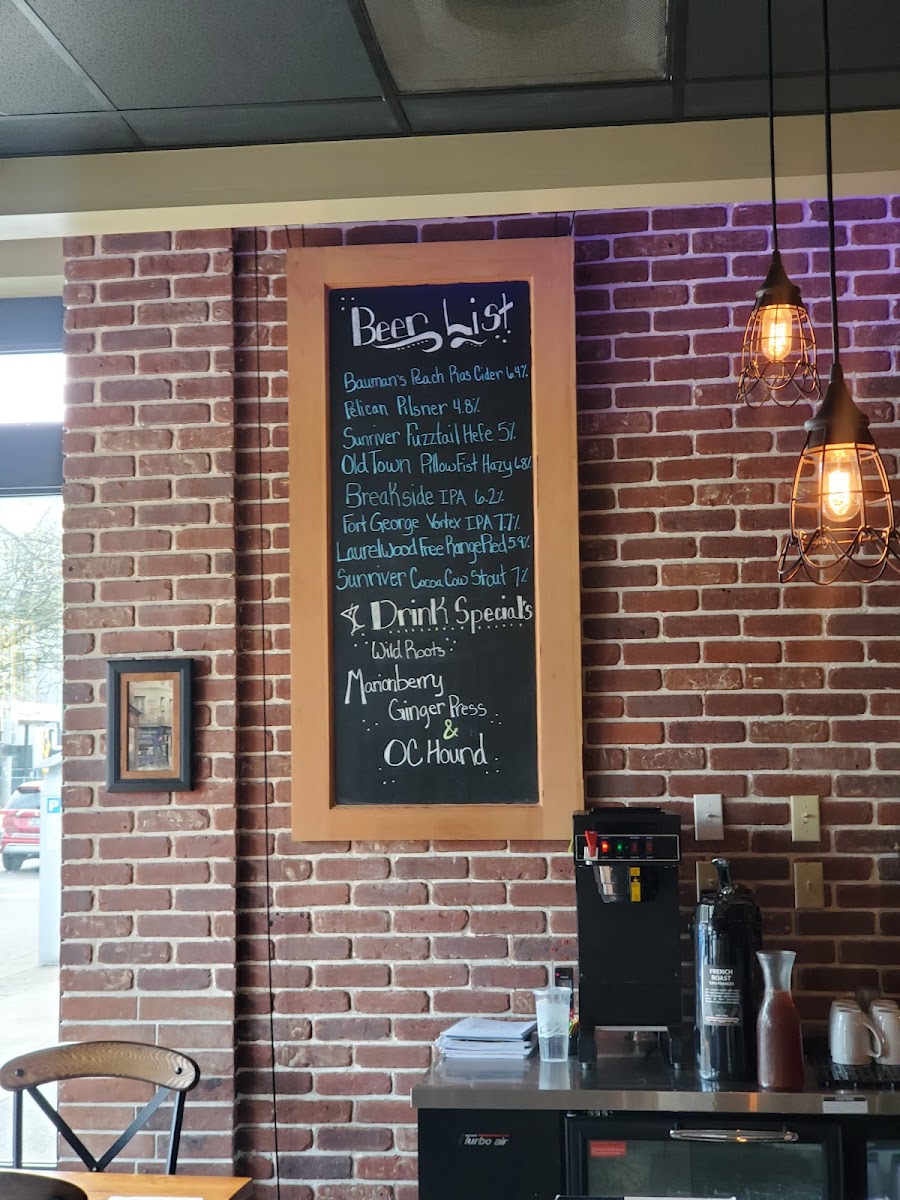 Beer List
Bauman's Peach Ras Cider 6.4%
Pelican Pilsner 4.8%
Sunriver Fuzztail Hefe 5%
Old Town Pillow Fist Hazy 6.8%
Breakside IPA 6.2%
Fort George Vortex IPA 7.7%
Laurelwood Free Range Red 5.9%
Sunriver Cocoa Cow Stout 7%
Drink Special's
Wild Roots
Marionberry
Ginger Press
&
OC Hound
FRENCH
ROAST
Turbo air
P